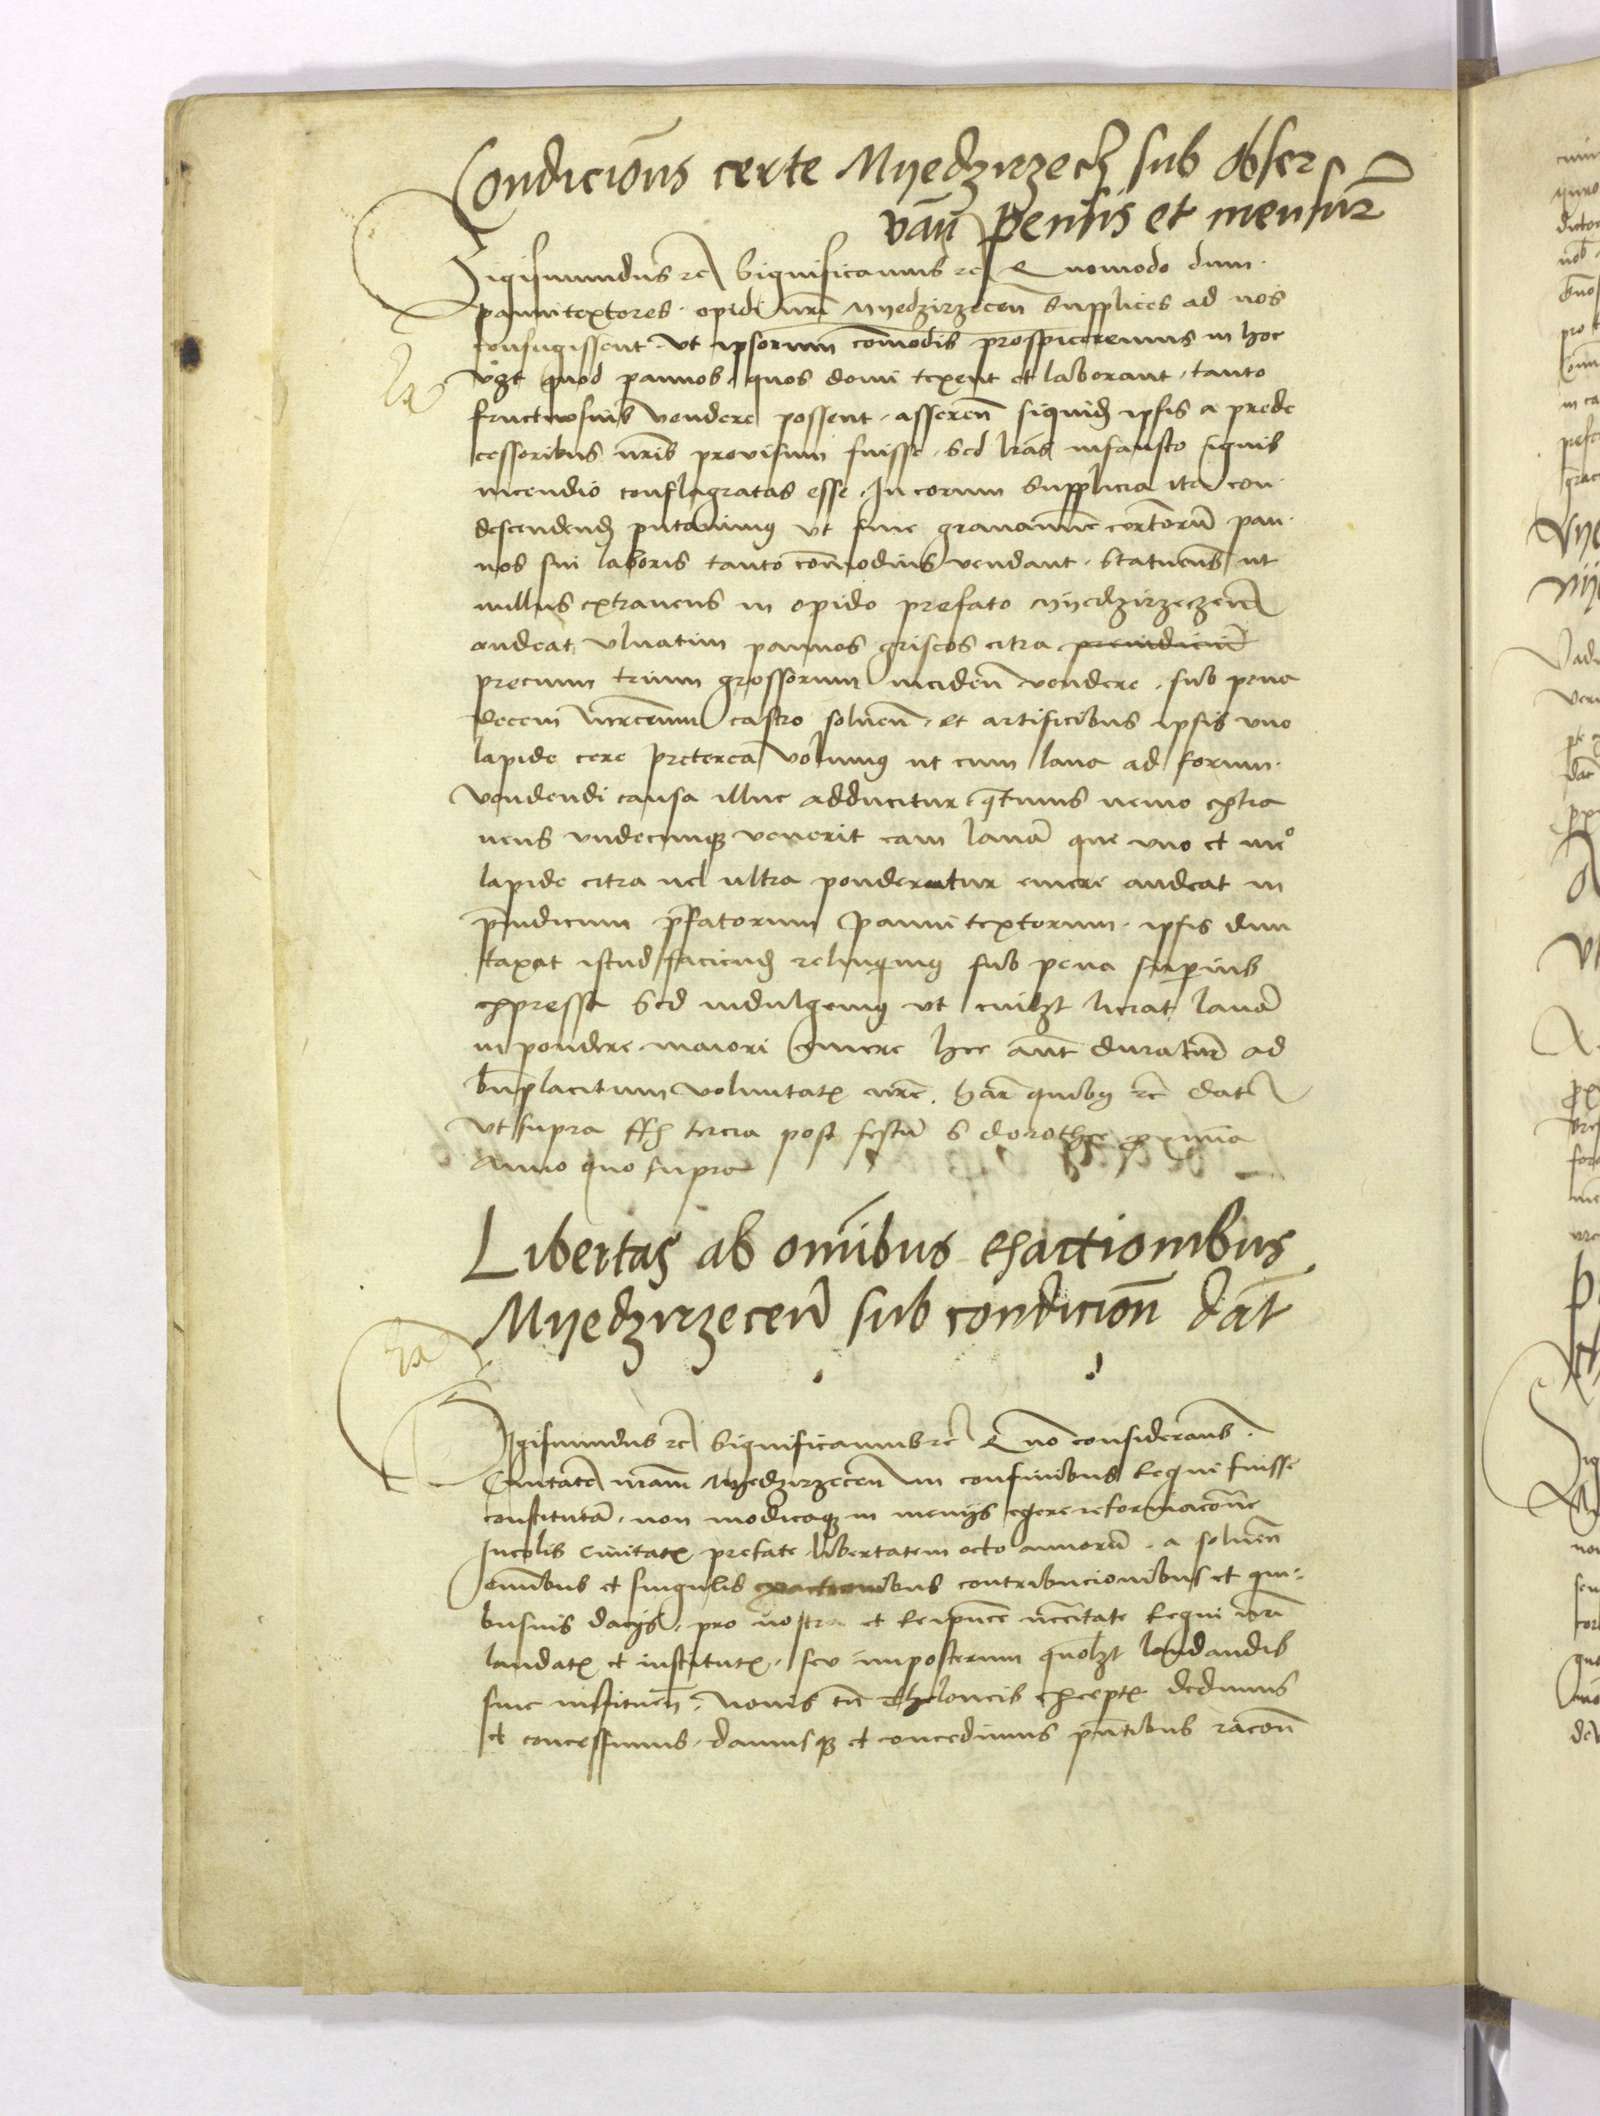 Condicions certe Myedzirzecz sub obser
van pensis et mensur
Sigismundus rc Significamus rc Quomodo dum
pannitextores opidi nri Myedzirzecen Supplices ad nos
confugissent Vt ipsorum comodis prospiceremus in hoc
vz quod pannos quos domi texent et laborant tanto
fructuosius vendere possent asseren siquid ipsis a prede
cessoribus nris provisum fuisse Sed lras infausto ignis
incendio conflagratas esse In eorum Supplicia ita con
descendend putavimus Vt sine gravamine certorum pan
nos sui laboris tanto comodius vendant Statuens ut
nullus extraneus in opido prefato Myedzirzeczen
audeat Vlnatim pannos griseos citra preiudiciu
precium trium grossorum inciden vendere sub pena
decem mrcarum castro solven et artificibus ipsis vno
lapide cere Preterea volumus ut cum lana ad forum
vendendi causa illuc adducitur qtenus nemo extra
neus vndecunque venerit eam lanam que vno et me
lapide citra vel ultra ponderatur emere audeat in
preiudicium pfatorum Pannitextorum ipsis dun
taxat istud faciend relinquimus sub pena superius
expressa Sed indulgemus vt cuilzt liceat lanam
in pondere maiori emere hec aut duratur ad
bnplacitum voluntatis nre Har quibus rc dat
Vt supra ff tercia post festum S dorothee proxima
Anno quo supra
Libertas ab omibus exactionibus
Myedzirzecen sub condicion dat
Sigismundus rc Significamus rc Quo considerans
Civitatem nram Myedzirzecen in confinibus Regni fuisse
constitutam non modicaque in menys egere reformacone
Incolis Civitatis prefate libertatem octo annorum a solven
omibus et singulis exactionibus contribucionibus et qui
busvis dacys pro nostra et Reipuce necitate Regni nri
laudatis et institutis seu inposterum quolzt laudandis
sive instituen Novis tn Theloneis exceptis dedimus
et concessimus damusque et concedimus pntibus racon